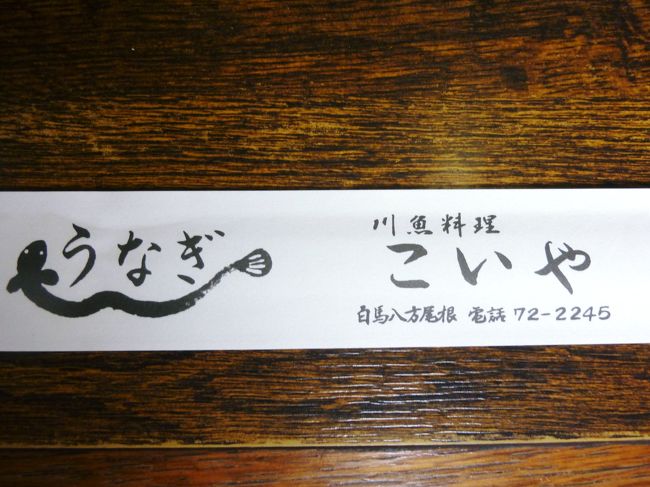 うなぎ
川魚料理
こいや
白馬八方尾根 電話 72-2245